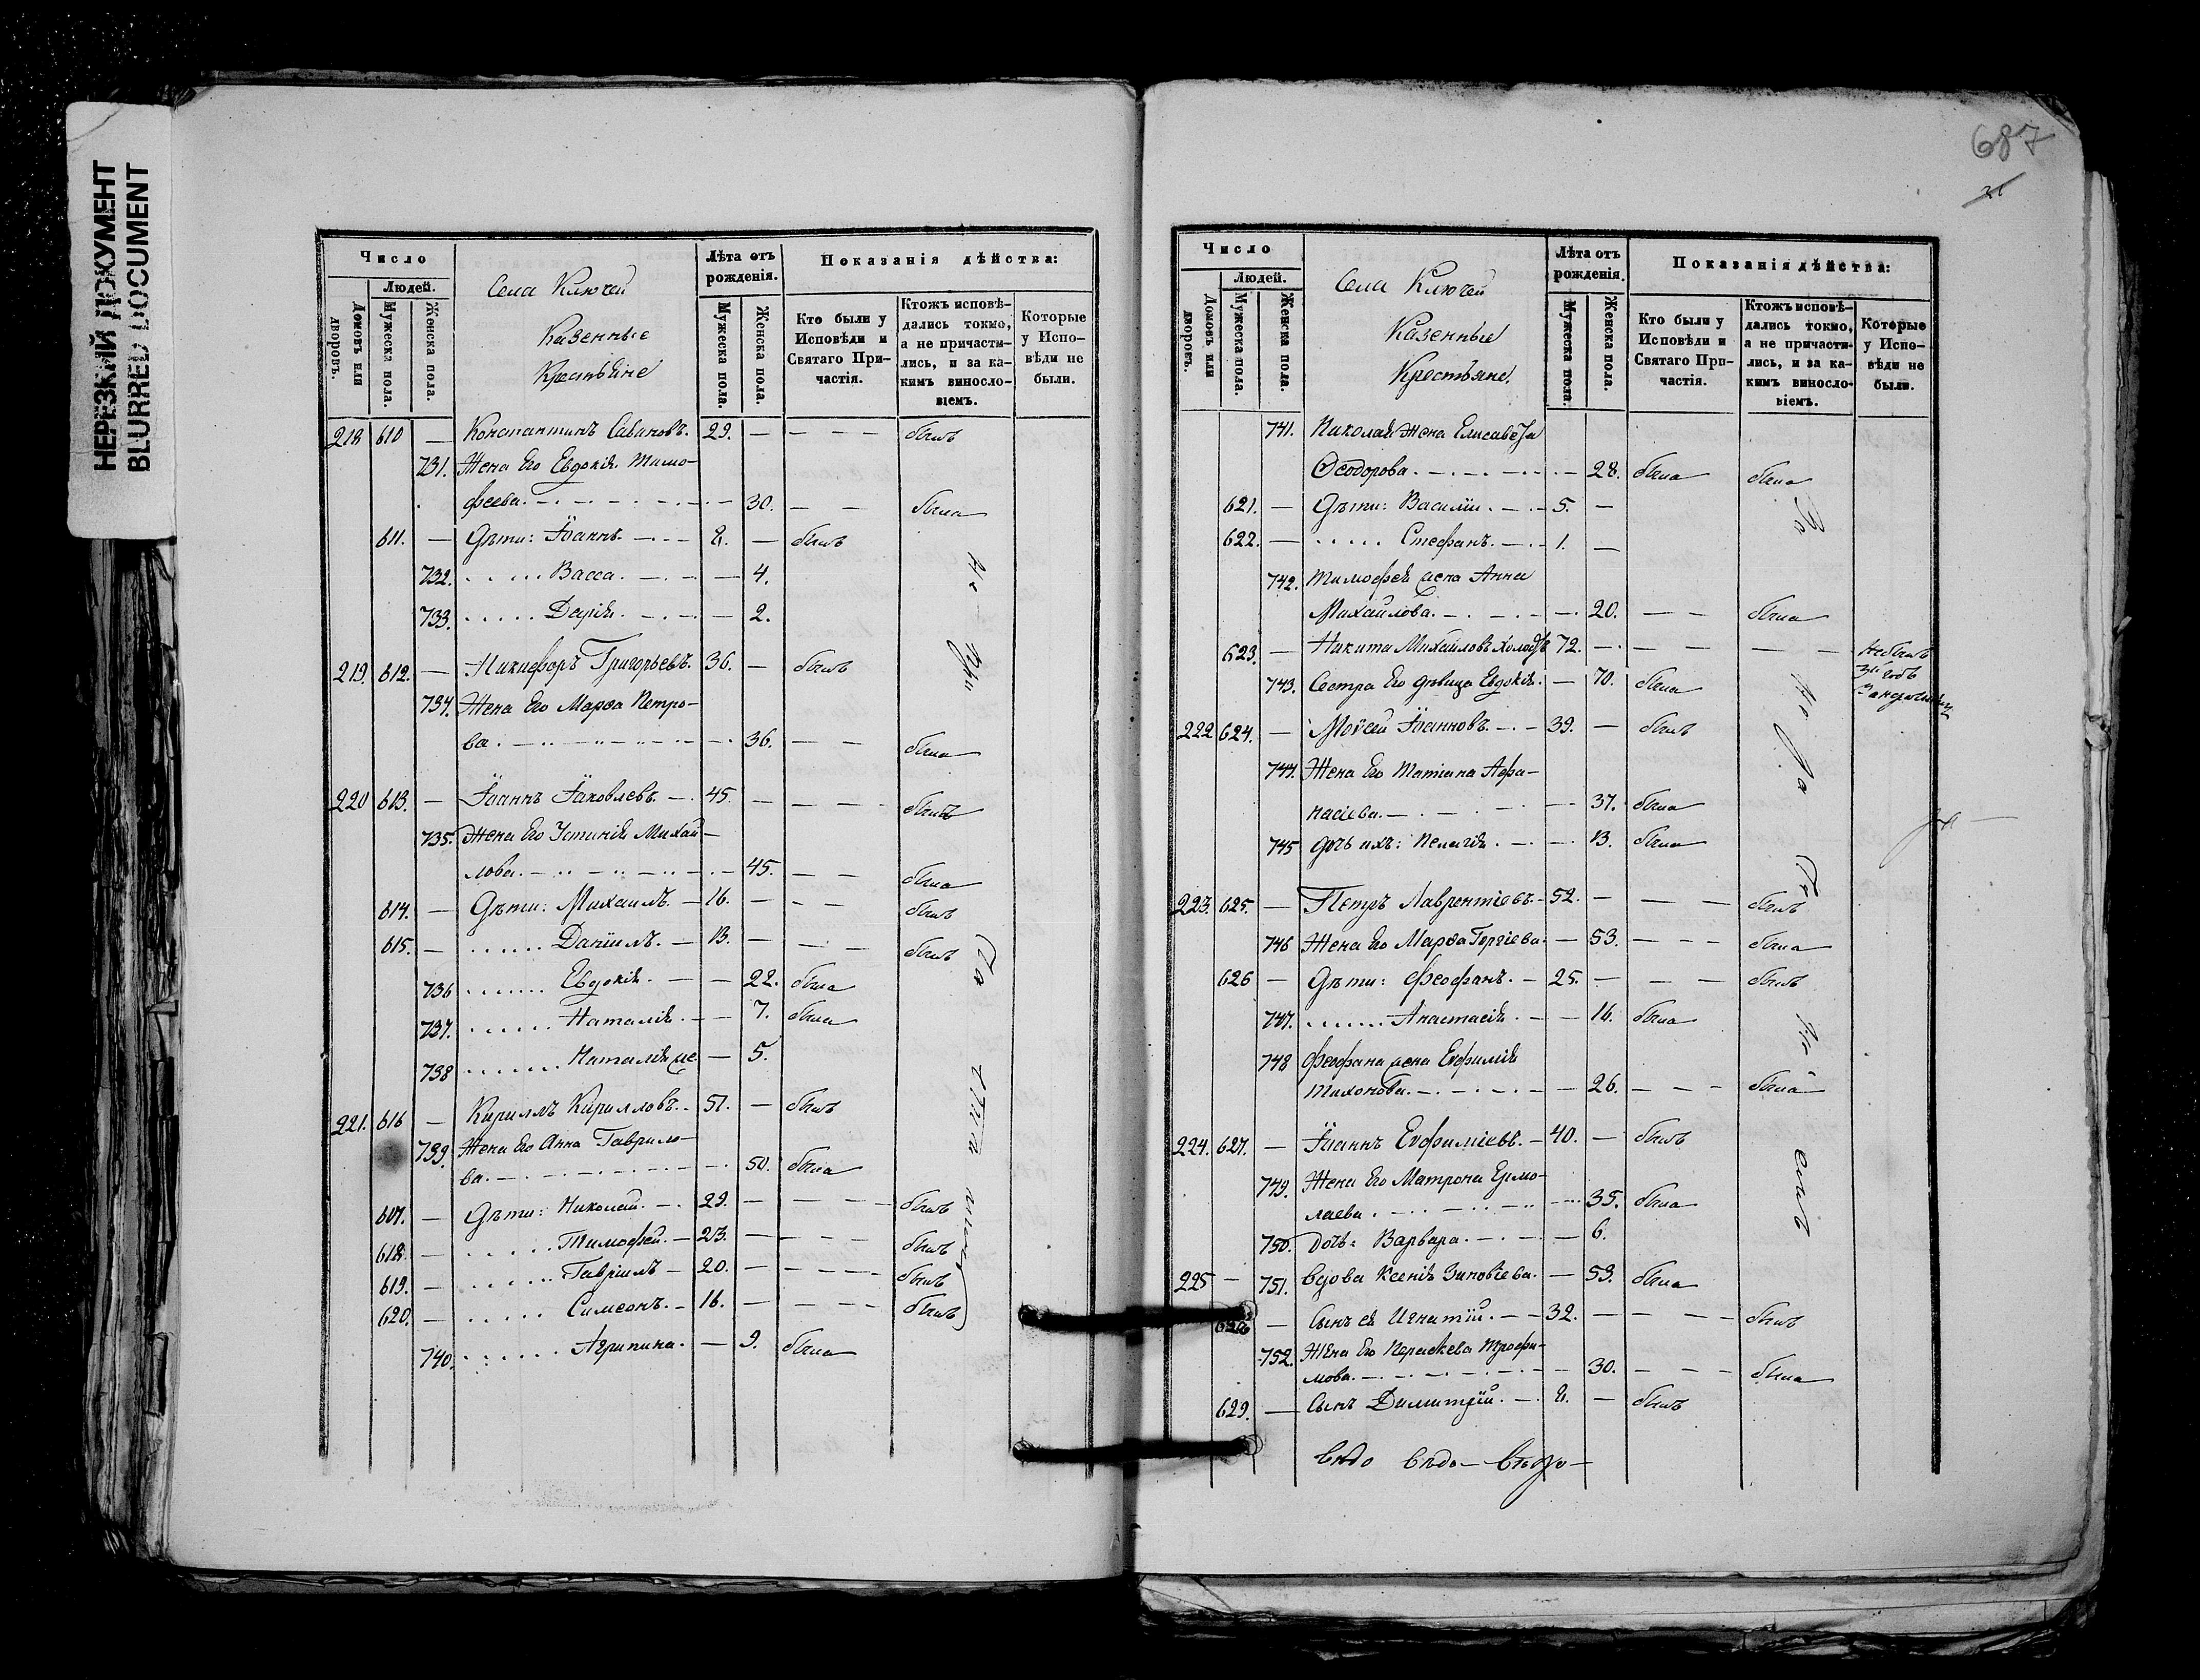 НЕРЕЗКИЙ ДОКУМЕНТ
BLURRED DOCUMENT
Число
Людей.
Домовъ или дворовъ.
Мужеска пола.
Женска пола.
Села Ключей
Казенные
Крестьяне
Лѣта отъ рожденія.
Мужеска пола.
Женска пола.
Показанія дѣйства:
Кто были у Исповѣди и Святаго Причастія.
Ктожъ исповѣдались токмо, а не причастились, и за какимъ винословіемъ.
Которые у Исповѣди не были.
218 610 — Константинъ Савиновъ. 29. — — — — былъ
731. Жена Его Евдокія Тимо-
феева. — 30. — — была
611. — Дѣти: Іоаннъ. — 8. — былъ
732. . . . . . Васса. — — 4.
733. . . . . . Дарія. — — 2.
219. 612. — Никифоръ Григорьевъ. 36. — былъ
734. Жена Его Марѳа Петро-
ва. — 36. — — была
220 613. — Іоаннъ Іаковлевъ. — 45. — — — — былъ
735. Жена Его Устинія Михай-
лова. — 45. — — была
614. — Дѣти: Михаилъ. — 16. — — — былъ
615. — . . . . . . Даніилъ. — 13. — — — былъ
736 . . . . . . . Евдокія. — — 22. была
737. . . . . . . Наталія. — — 7. была
738 . . . . . . . Наталія — 5.
221. 616 — Кириллъ Кирилловъ. — 51. — былъ
739. Жена Его Анна Гаврило-
ва. — 50. была
617. — Дѣти: Николай. — 29. — — — — былъ
618. — . . . . . . Тимофей. — 23. — — — — былъ
619. — . . . . . . Гавріилъ — 20. — — — — былъ
620. — . . . . . Симеонъ. — 16. — — — — былъ
740. . . . . . . Агрипина. — 9. была
687
Число
Людей.
Домовъ или дворовъ.
Мужеска пола.
Женска пола.
Села Ключей
Казенные
Крестьяне.
Лѣта отъ рожденія.
Мужеска пола.
Женска пола.
Показанія дѣйства:
Кто были у Исповѣди и Святаго Причастія.
Ктожъ исповѣдались токмо, а не причастились, и за какимъ винословіемъ.
Которые у Исповѣди не были.
741. Николая Жена Елисавета
Ѳеодорова. — 28. была была
621. — Дѣти: Василій. — 5. —
622. — . . . . . Стефанъ. — 1. —
742. Тимофея жена Анна
Михайлова. — 20. — — была
623. — Никита Михайловъ 72. — — — — — Небылъ
743. Сестра Его дѣвица Евдокія. — 70. была
222 624. — Моѵсей Іоанновъ. — 39. — былъ
744. Жена Его Татіана Афа-
насіева. — 37. была
745 дочь ихъ: Пелагія. — 13. была
223. 625. — Петръ Лаврентіевъ. — 52. — — — былъ
746 Жена Его Марѳа Гергіева. — 53. — — — была
626 — Дѣти: Феофанъ. — 25. — — — былъ
747. . . . . . . Анастасія. — — 16. была
748 Феофана жена Евфимія
Тихонова. — 26. — — — была
224. 627. — Іоаннъ Евфиміевъ. — 40. — былъ
749. Жена Его Матрона Ермо-
лаева. — 35. была
750. дочь: Варвара. — — 6.
225 — 751. вдова Ксенія Зиновіева. — 53. была
628 — Сынъ ея Игнатій. — 32. — — — — былъ
752. Жена Его Параскева Трофи-
мова. — 30. — — — была
629. — Сынъ Димитрій. — 8. — былъ